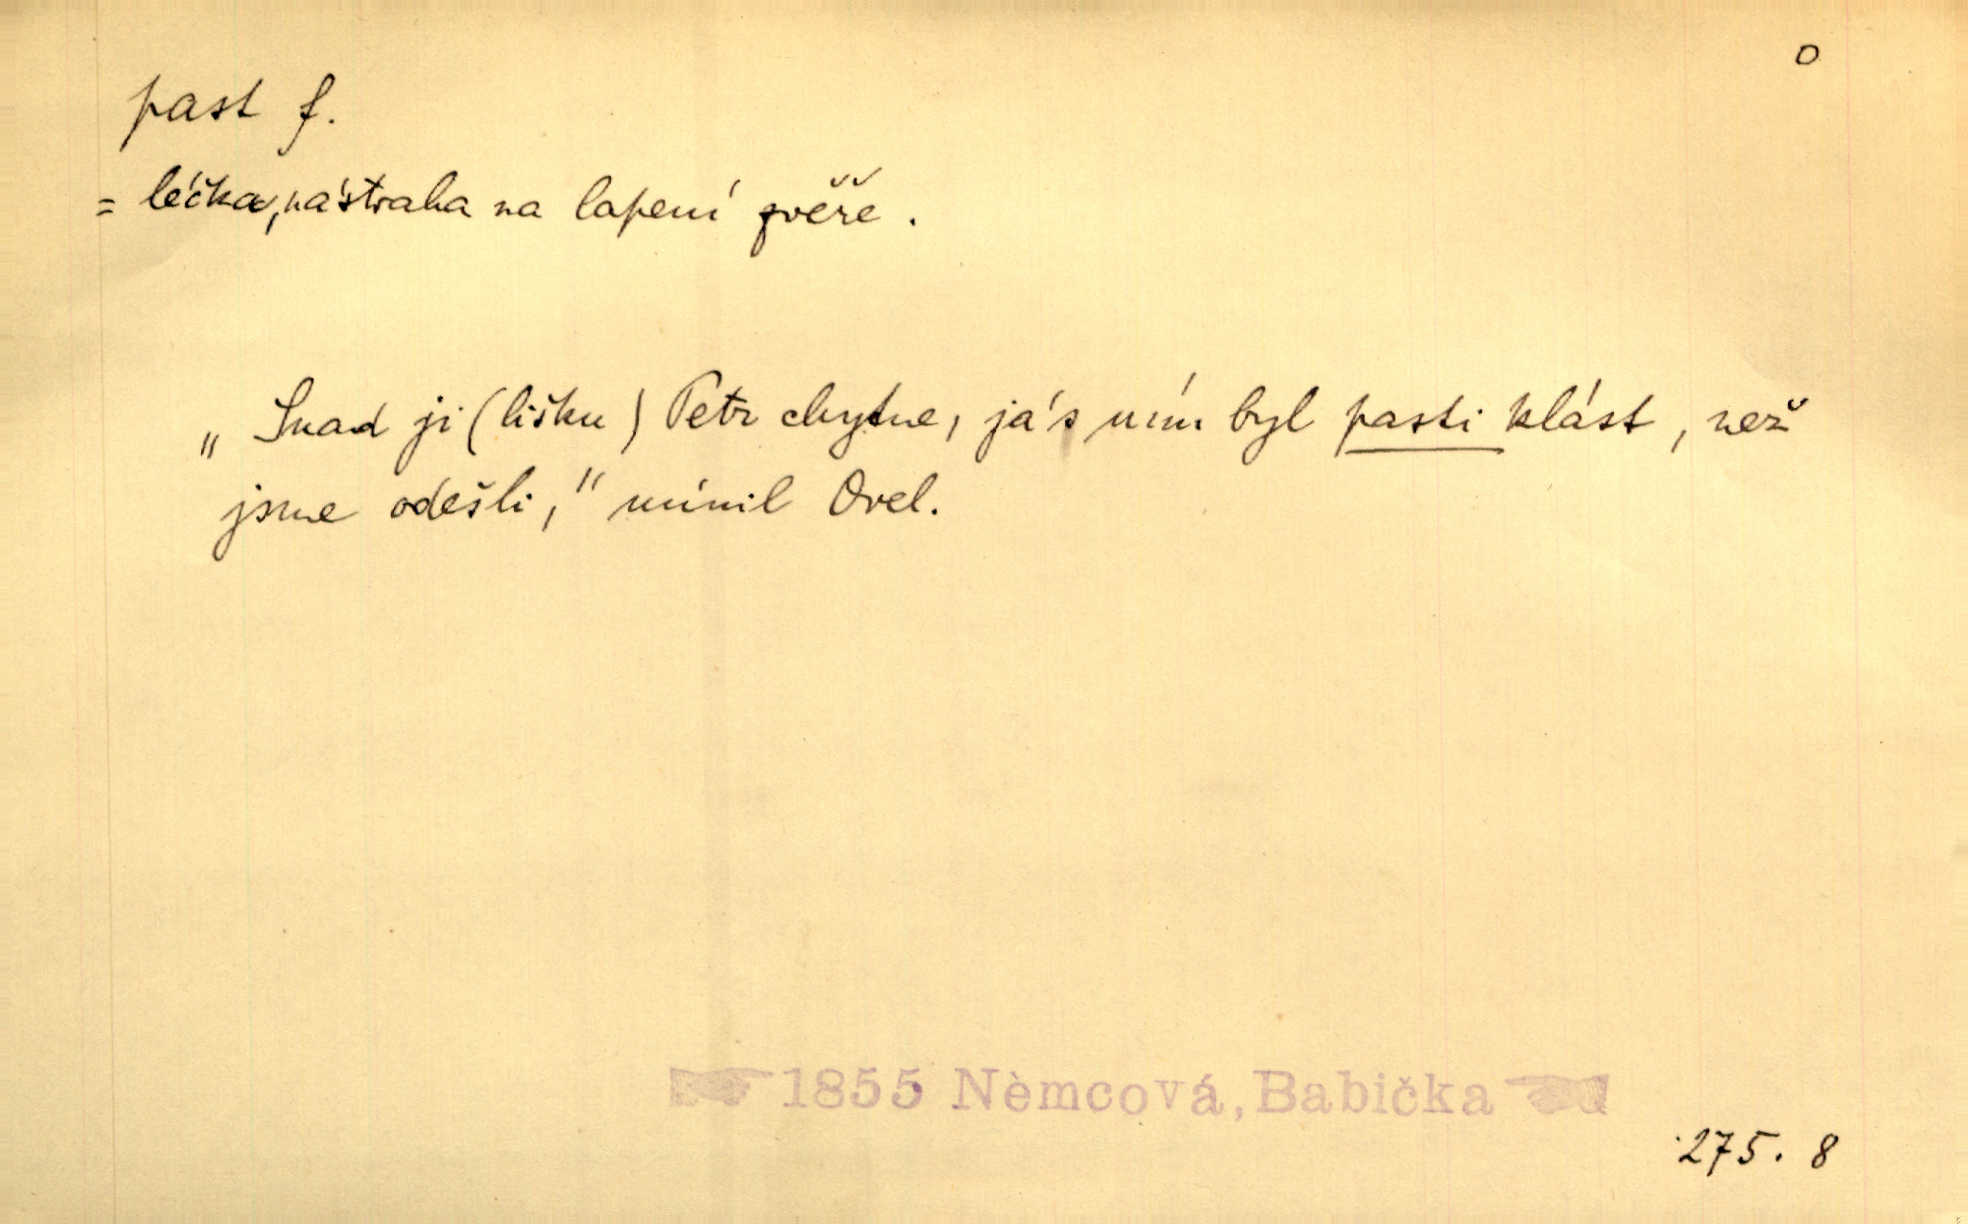 o
past f.
= léčka, nástraha na lapení zvěře.
„Snad ji (lišku) Petr chytne, já s ním byl pasti klást, než
jsme odešli,“ mínil Orel.
1855 Němcová, Babička
275. 8